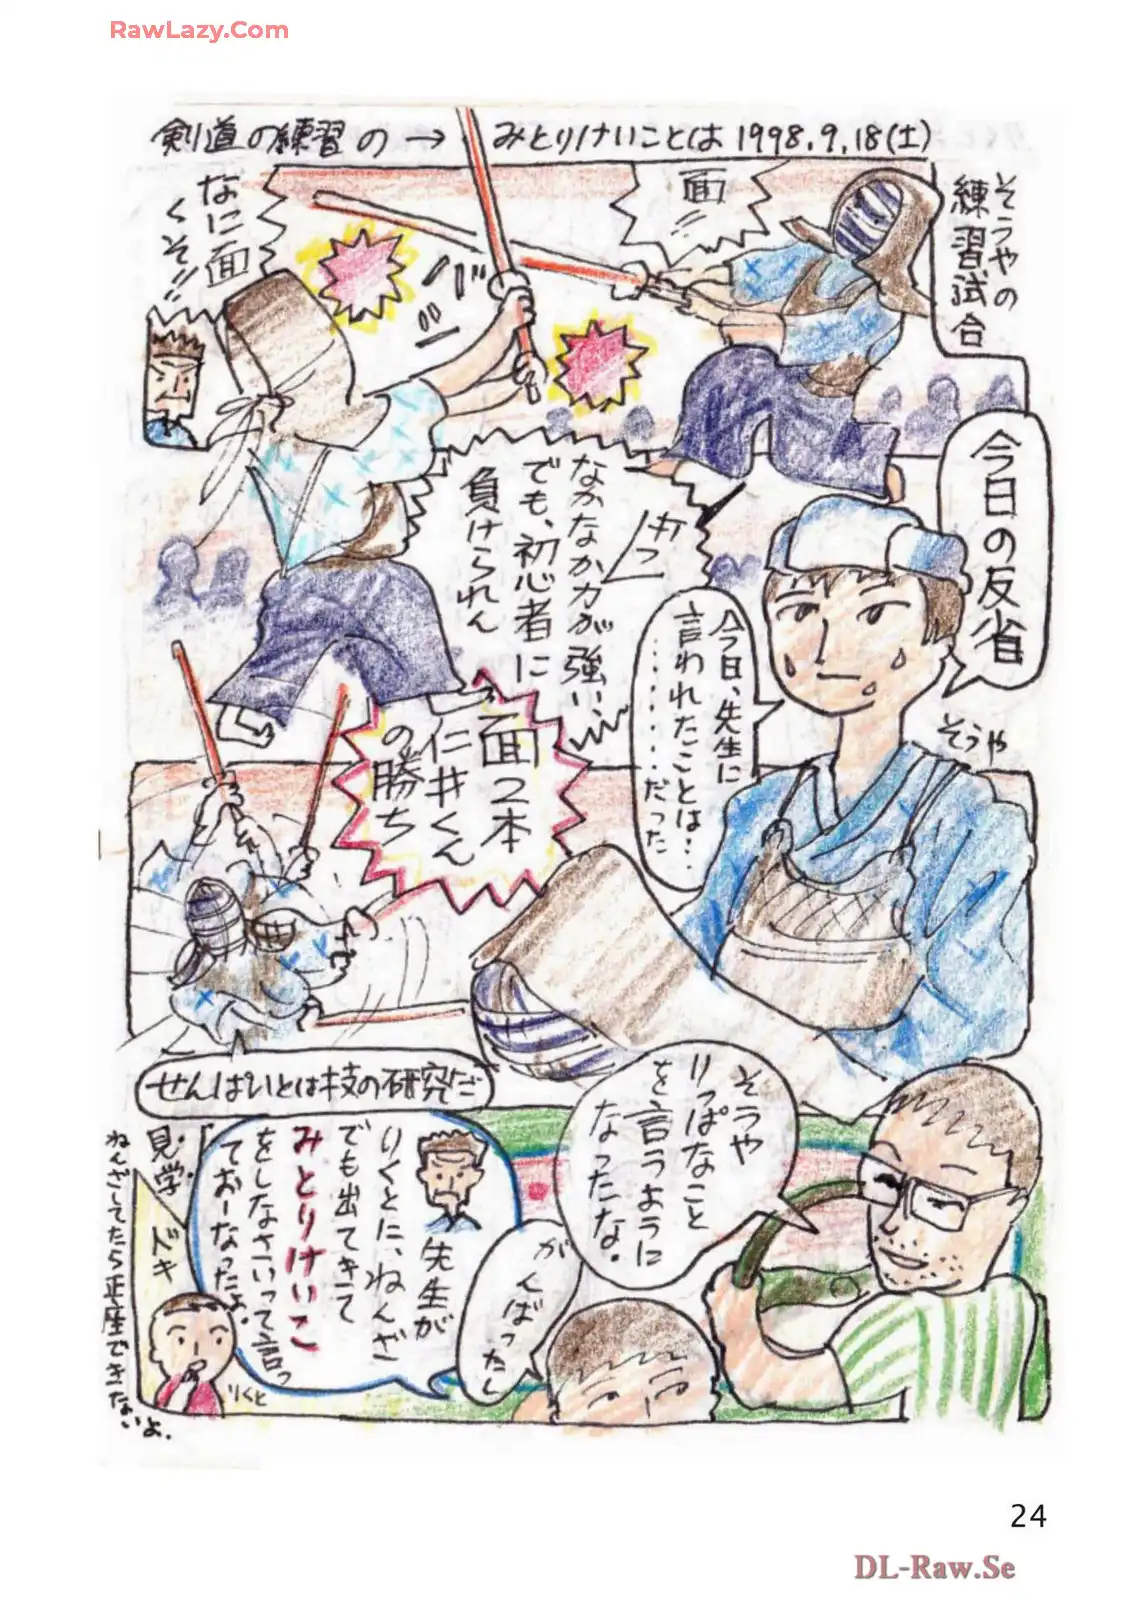 RawLazy.Com
剣道の練習の→みとりけいことは1998.9.18(土)
そうやの
練習試合
面!!
なに面
くそ!!
バ
今日の反省
そうや
なかなか力が強い、
でも、初心者に
負けられん
今日、先生に
言われたことは‥
‥‥‥だった
面2本
仁井くん
の勝ち
せんぱいとは技の研究だ
そうや
りっぱなこと
を言うように
なったな。
がんばったし
先生が
りくとに、ねんざ
でも出てきて
みとりけいこ
をしなさいって言っ
ておーなったよ。
見学
ドキ
りくと
ねんざしてたら正座できないよ.
24
DL-Raw.Se